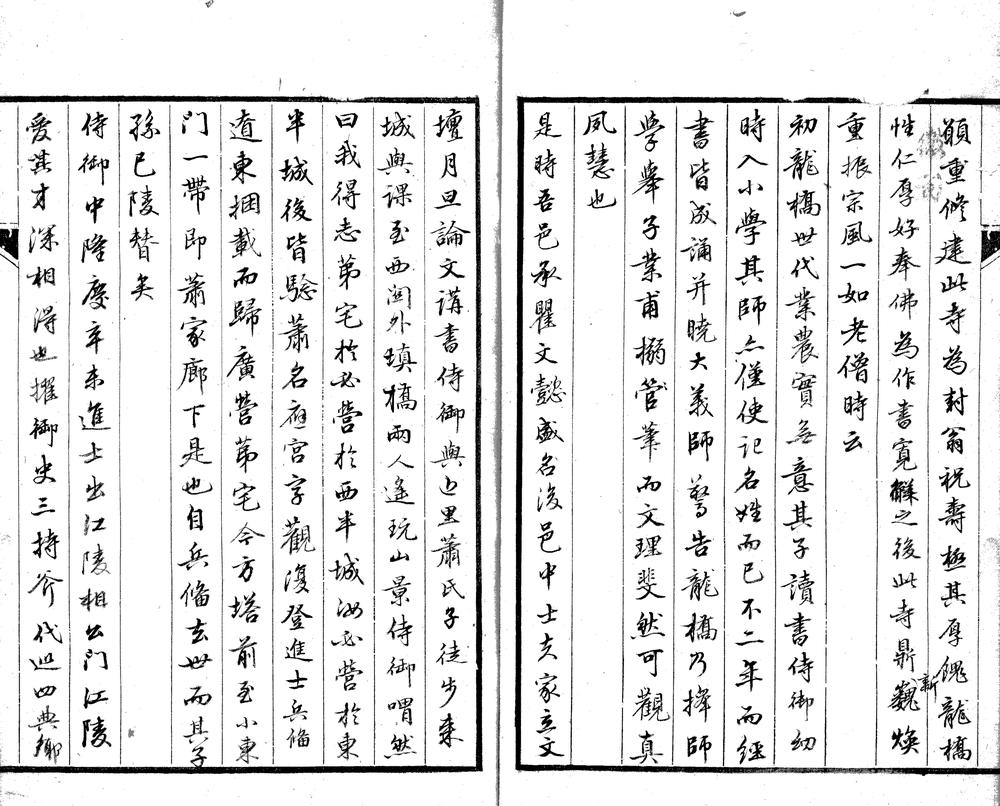 願重修建此寺為封翁祝壽極其厚餽龍橋
性仁厚好奉佛為作書寬解之後此寺鼎新巍煥
重振宗風一如老僧時云
初龍橋世代業農實無意其子讀書侍御幼
時入小學其師亦僅使記名姓而已不二年而經
書皆成誦并曉大義師驚告龍橋乃擇師
學舉子業甫搦管筆而文理斐然可觀真
夙慧也
是時吾邑承瞿文懿盛名後邑中士夫家立文
壇月旦論文講書侍御與邑里蕭氏子徒步來
城與課至西關外填橋兩人遙玩山景侍御喟然
曰我得志第宅於必營於西半城汝必營於東
半城後皆驗蕭名應宮字觀復登進士兵俻
遼東捆載而歸廣營第宅今方塔前至小東
門一帶即蕭家廊下是也自兵俻去世而其子
孫已陵替矣
侍御中隆慶辛未進士出江陵相公門江陵
愛其才深相得也擢御史三持斧代巡四典鄉